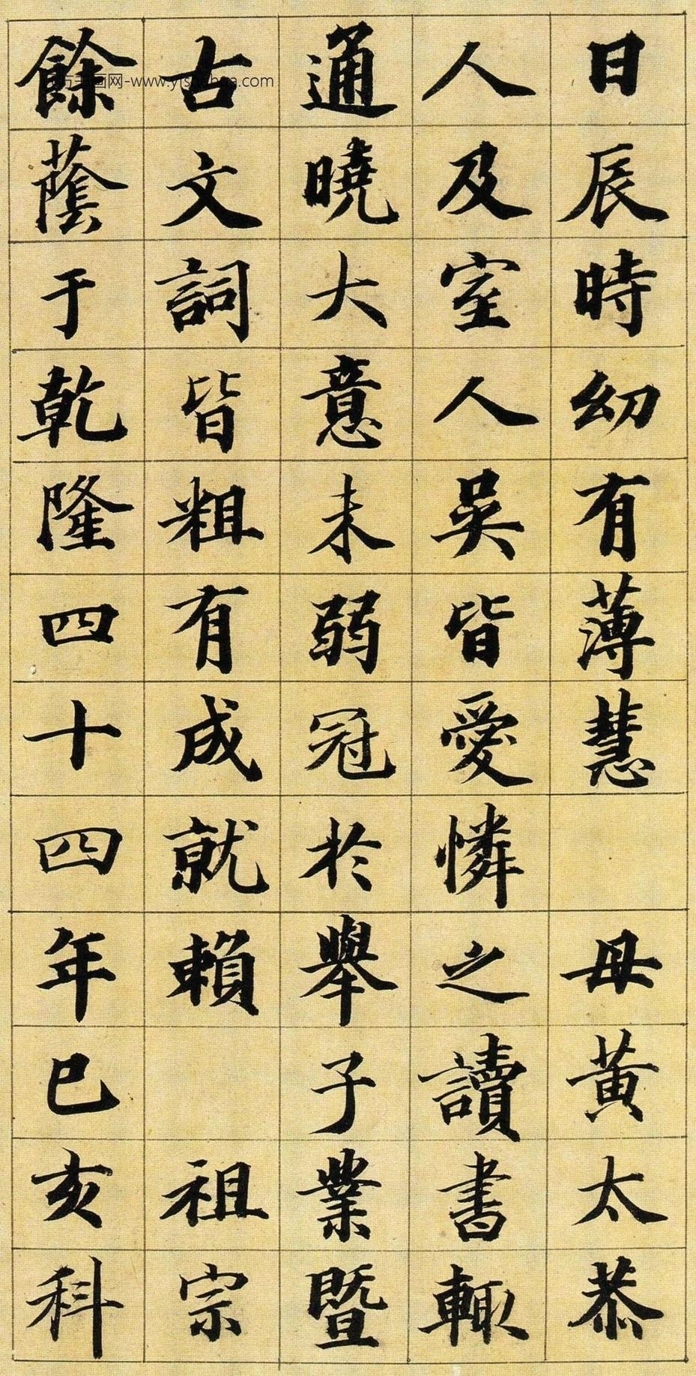 日辰時幼有薄慧　母黃太恭
人及室人吳皆愛憐之讀書輙
通曉大意未弱冠於舉子業暨
古文詞皆粗有成就賴　祖宗
餘蔭于乾隆四十四年巳亥科